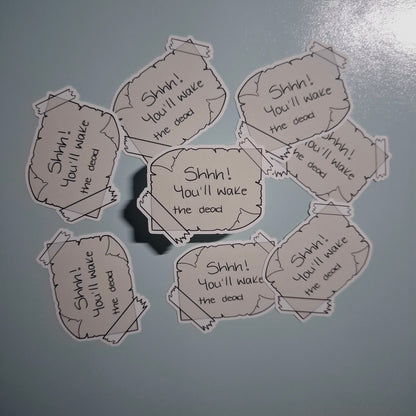 Shhh!
You'll wake
the dead
Shhh!
You'll wake
the dead
Shhh!
You'll wake
the dead
You'll wake
the dead
Shhh!
You'll wake
the dead
Shhh!
You'll wake
the dead
Shhh!
You'll wake
the dead
Shhh!
You'll wake
the dead